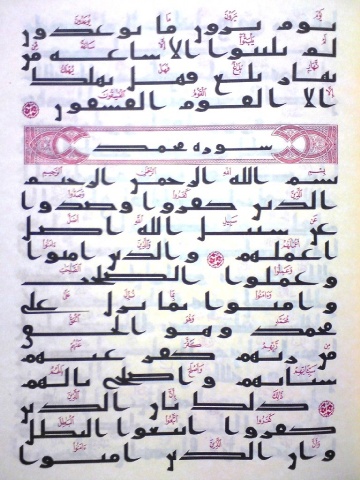 يوم يرون ما يوعدون
لم يلبثوا الا ساعة من
نهار بلغ فهل يهلك
الا القوم الفسقون
سورة محمد
بسم الله الرحمن الرحيم
الذين كفروا وصدوا
عن سبيل الله اضل
اعملهم والذين امنوا
وعملوا الصلحت
وامنوا بما نزل على
محمد وهو الحق
من ربهم كفر عنهم
سياتهم واصلح بالهم
ذلك بان الذين
كفروا اتبعوا البطل
وان الذين امنوا